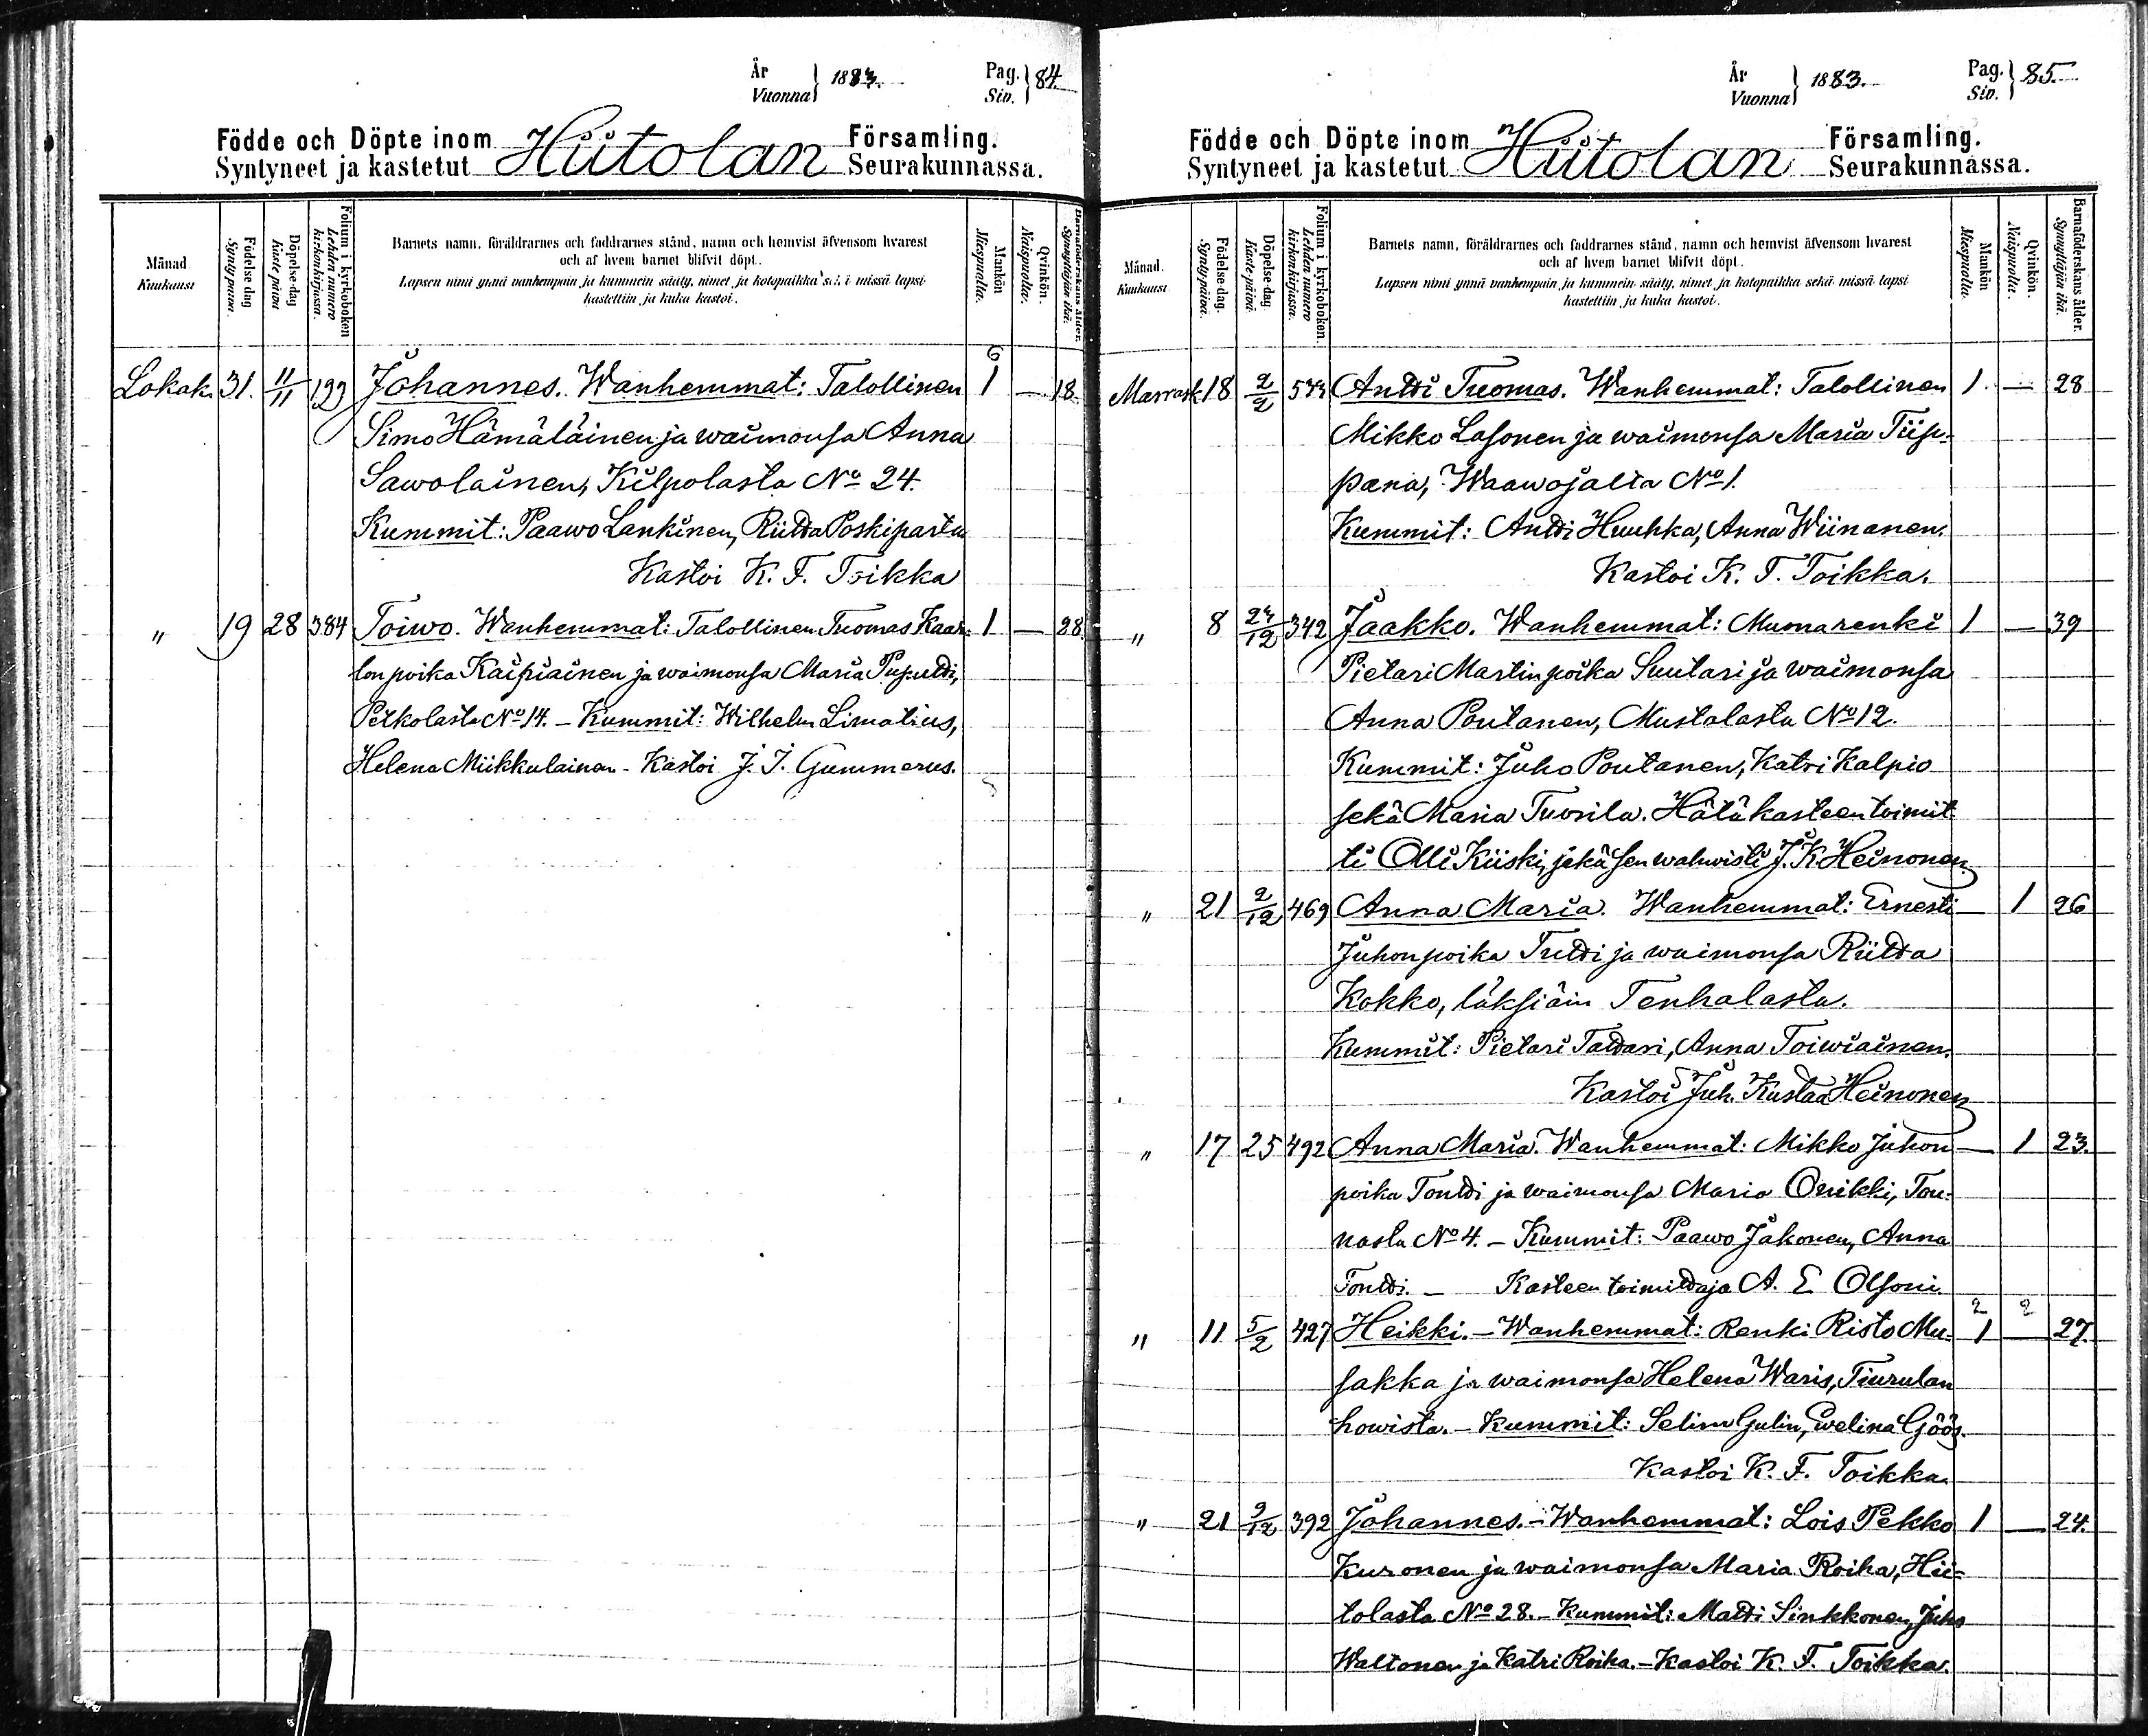 År
Vuonna } 1883. Pag. Siv. } 84.
Födde och Döpte inom Hiitolan Församling.
Syntyneet ja kastetut Seurakunnassa.
Månad. Kuukausi
Födelse dag. Syntypäivä.
Döpelse-dag Kaste-päivä
Folium i kyrkoboken Lehden numero kirkonkirjassa.
Barnets namn, föräldrarnes och faddrarnes stånd, namn och hemvist äfvensom hvarest
och af hvem barnet blifvit döpt.
Lapsen nimi ynnä vanhempain ja kummein sääty, nimet ja kotopaikka sekä missä lapsi
kastettiin ja kuka kastoi.
Mankön Miespuolia.
Qvinkön. Naispuolia.
Barnaföderskans ålder. Synnyttäjän ikä.
6
Lokak. 31. 11/11 199 Johannes. Wanhemmat: Talollinen 1 — 18.
Simo Hämäläinen ja waimonsa Anna
Sawolainen, Kilpolasta No 24.
Kummit: Paawo Lankinen, Riitta Poskiparta
Kastoi K. F. Toikka
" 19 28 384 Toiwo. Wanhemmat: Talollinen Tuomas Kaar- 1 — 28
lonpoika Kaipiainen ja waimonsa Maria Puputti,
Petkolasta No 14. – Kummit: Wilhelm Limatius,
Helena Miikkulainen – Kastoi J. I. Gummerus.
År
Vuonna } 1883. Pag. Siv. } 85.
Födde och Döpte inom Hiitolan Församling.
Syntyneet ja kastetut Seurakunnassa.
Månad. Kuukausi
Födelse-dag. Syntypäivä.
Döpelse-dag. Kaste-päivä.
Folium i kyrkoboken. Lehden numero kirkonkirjassa.
Barnets namn, föräldrarnes och faddrarnes stånd, namn och hemvist äfvensom hvarest
och af hvem barnet blifvit döpt.
Lapsen nimi ynnä vanhempain ja kummein sääty, nimet ja kotopaikka sekä missä lapsi
kastettiin ja kuka kastoi.
Mankön Miespuolia.
Qvinkön. Naispuolia.
Barnaföderskans ålder. Synnyttäjän ikä.
Marrask. 18 2/2 Antti Tuomas. Wanhemmat: Talollinen 1. — 28
Mikko Lasonen ja waimonsa Maria Tiip-
pana, Waawojalta No 1.
Kummit: Antti Huuhka, Anna Wiinanen.
Kastoi K. F. Toikka.
" 8 24/12 342 Jaakko. Wanhemmat: Muonarenki 1 — 39
Pietari Martinpoika Suutari ja waimonsa
Anna Poutanen, Mustolasta No 12.
Kummit: Juho Poutanen, Katri Kalpio
sekä Maria Tuosila. Hätäkasteen toimit-
ti Olli Kiiski, jekä sen wahwisti J. K Heinonen
" 21 2/12 469 Anna Maria. Wanhemmat: Ernesti — 1 26
Juhonpoika Tutti ja waimonsa Riitta
Kokko, läksiäin Tenhalasta.
Kummit: Pietari Tattari, Anna Toiwiainen.
Kastoi Juh. Kustaa Heinonen
" 17 25 492 Anna Maria. Wanhemmat: Mikko Juhon — 1 23.
poika Tontti ja waimonsa Maria Onikki, Tou-
nasta No 4. – Kummit: Paawo Jakonen, Anna
Tontti. – Kasteen toimittaja A. E Olsoni.
2 2
" 11 5/2 427 Heikki. – Wanhemmat: Renki Risto Mu- 1 — 27.
sakka ja waimonsa Helena Waris, Tiurulan
howista. – Kummit: Selim Gulin, Ewelina Göös.
Kastoi K. F. Toikka.
" 21 9/12 392 Johannes. – Wanhemmat: Lois Pekko 1 — 24.
Kuronen ja waimonsa Maria Roiha, Hii-
tolasta No 28. – Kummit: Matti Sinkkonen, Juho
Waltonen ja Katri Roiha. – Kastoi K. F. Toikka.